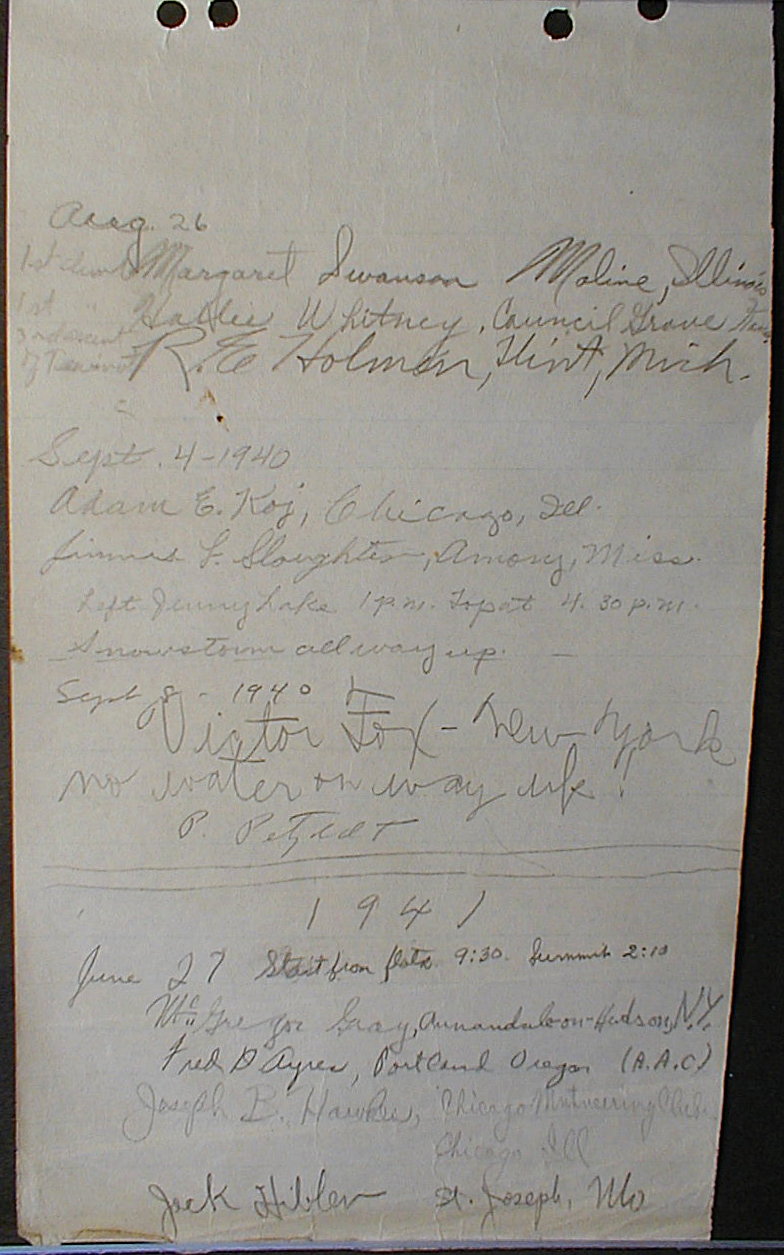 Aug. 26
1st climb Margaret Swanson Moline, Illinois
1st " Hallie Whitney, Council Grove Kans.
R. E Holmen, Flint, Mich.
Sept. 4-1940
Adam E. Koj, Chicago, Ill.
L. Sloughter, Amory, Miss.
Left Jenny Lake 1 p.m. Top at 4.30 p.m.
Snowstorm all way up.
Sept 8 - 1940
Victor Fox - New York
no water on way up!
P. Petzoldt
1941
June 27 Start from flats 9:30. Summit 2:10
McGregor Gray, Annandale-on-Hudson, N.Y.
Fred D Ayres, Portland Oregon (A.A.C)
Joseph B. Hawkes, Chicago Mntneering Club.
Chicago Ill
Jack Hibler St. Joseph, Mo